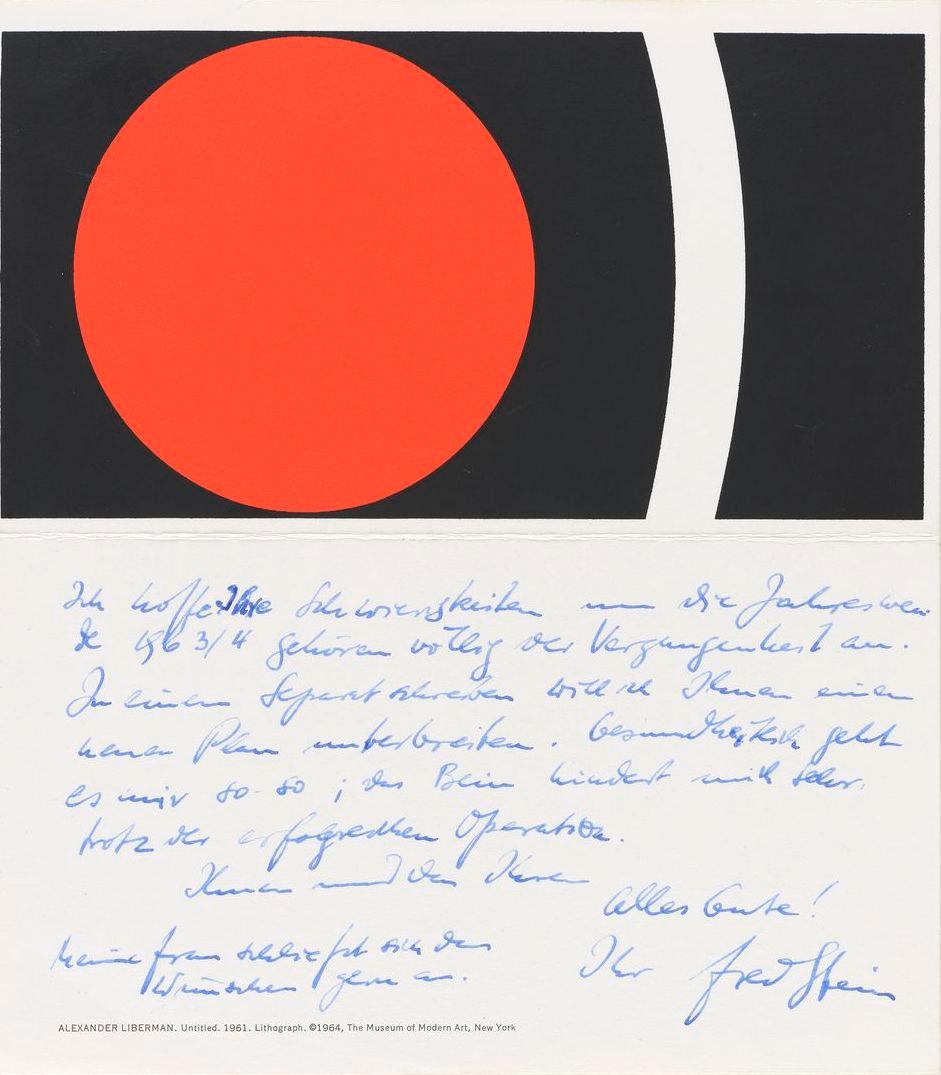 Ich hoffe Ihre Schwierigkeiten um die Jahreswen-
de 1963/4 gehören völlig der Vergangenheit an.
In einem Separatschreiben will ich Ihnen einen
neuen Plan unterbreiten. Gesundheitlich geht
es mir so-so; das Bein hindert mich sehr
trotz der erfolgreichen Operation.
Ihnen und den Ihren
Alles Gute!
Meine Frau schliesst sich den
Wünschen gern an.
Ihr Fred Stein
ALEXANDER LIBERMAN. Untitled. 1961. Lithograph. ©1964, The Museum of Modern Art, New York